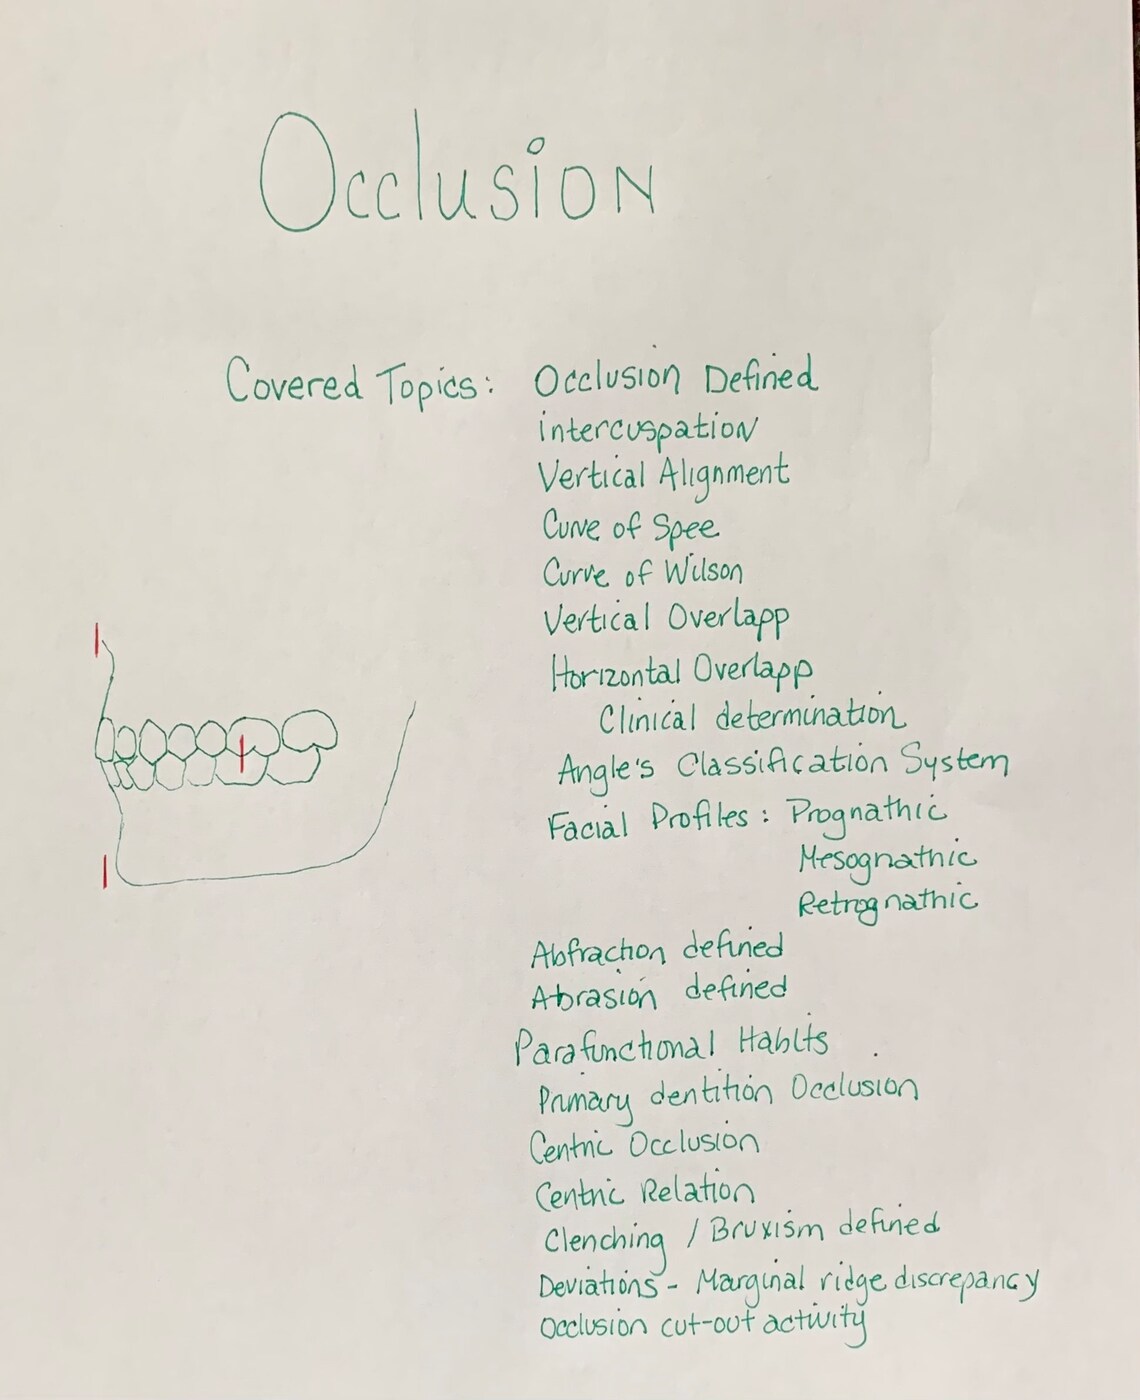 Occlusion
Covered Topics: Occlusion Defined
intercuspation
Vertical Alignment
Curve of Spee
Curve of Wilson
Vertical Overlapp
Horizontal Overlapp
Clinical determination
Angle's Classification System
Facial Profiles: Prognathic
Mesognathic
Retrognathic
Abfraction defined
Abrasion defined
Parafunctional Habits
Primary dentition Occlusion
Centric Occlusion
Centric Relation
Clenching / Bruxism defined
Deviations - Marginal ridge discrepancy
Occlusion cut-out activity